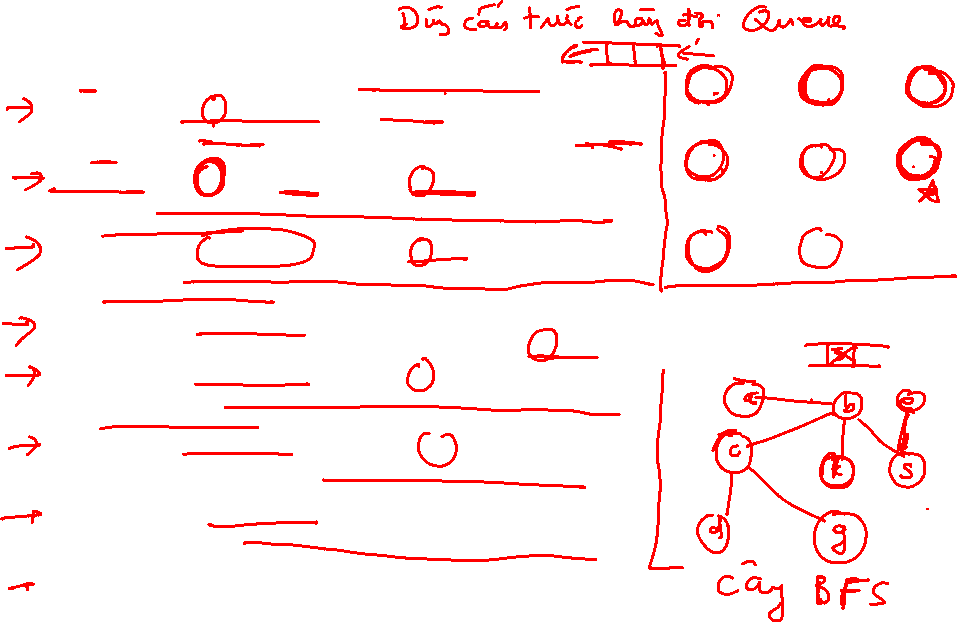 Dùng cấu trúc hàng đợi Queue
a b e
c k s
d g
Cây BFS